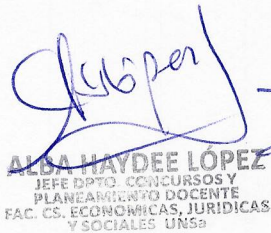 ALBA HAYDEE LÓPEZ
JEFE DPTO. CONCURSOS Y
PLANEAMIENTO DOCENTE
FAC. CS. ECONOMICAS, JURIDICAS
Y SOCIALES UNSa